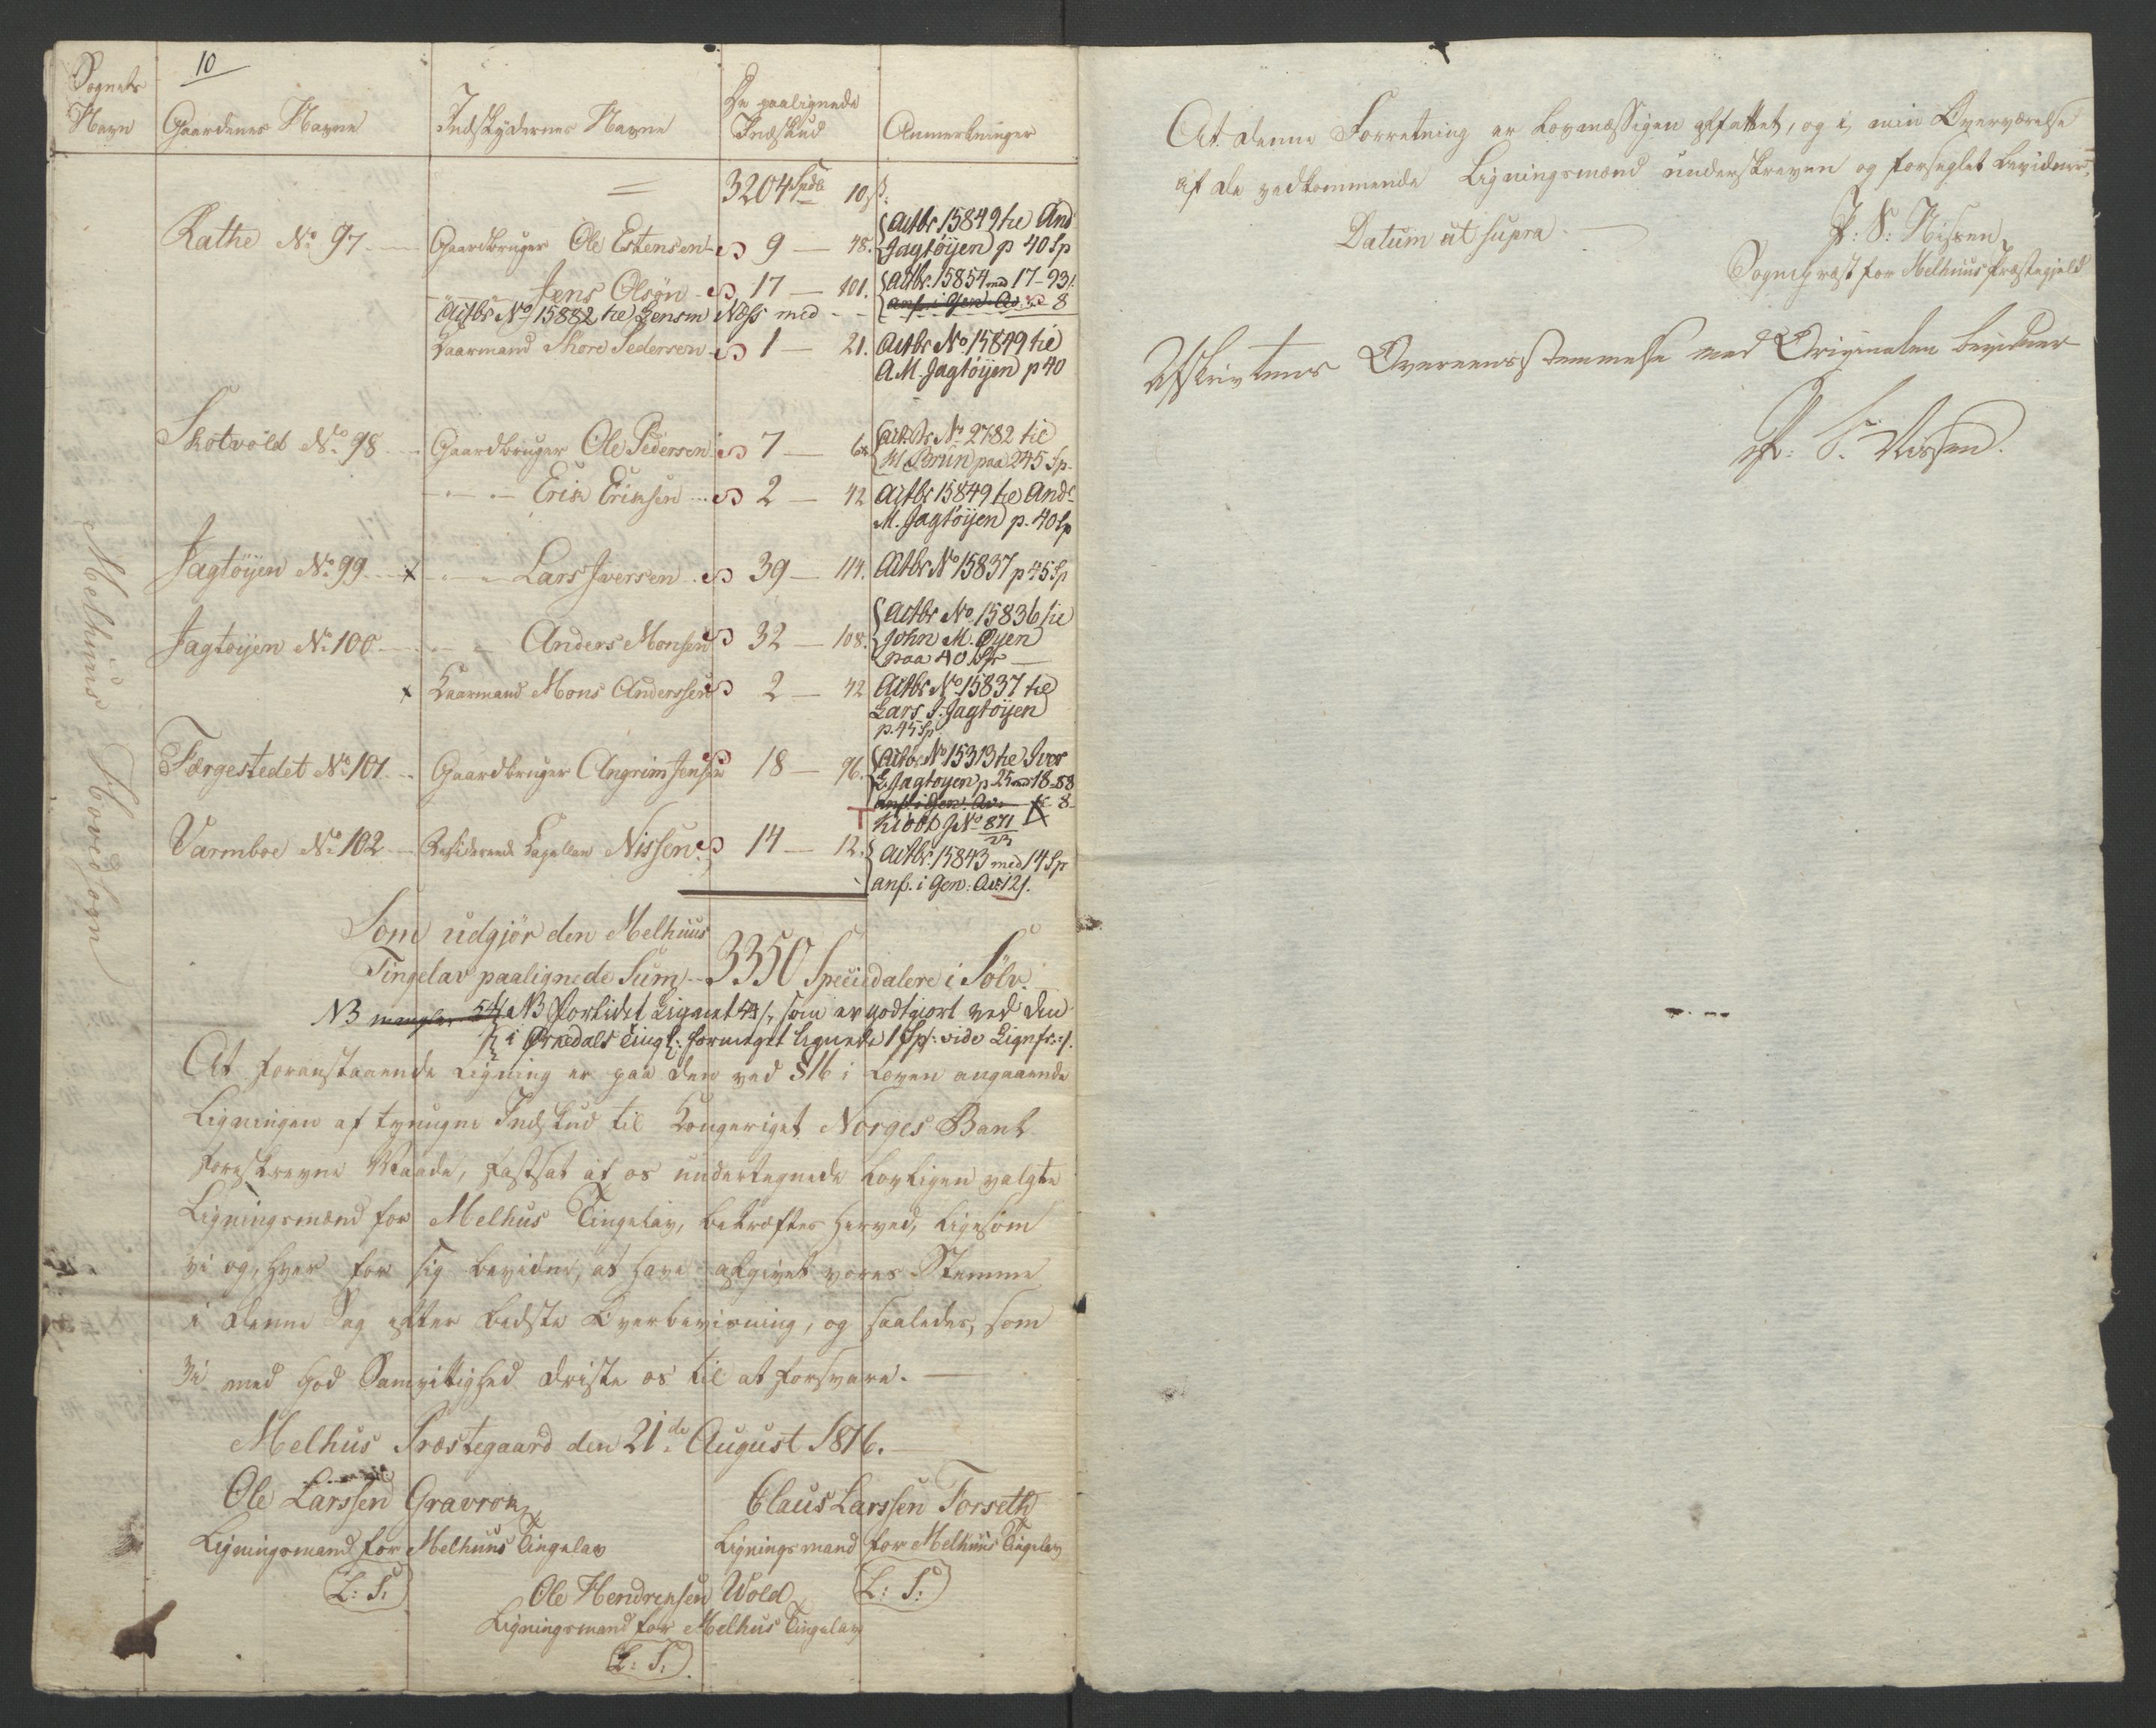 10
Sognets
Navn
Gaardenes Navne
Indskydernes Navne
De paalignede
Indskud
Anmerkninger
Melhuus Hovedsogn
3204 Spdlr 10 s.
Rathe No 97 — Gaardbruger Ole Estensen 9 — 48.
Actbr 15849 til And
Jagtöyen p 40 Sp
Jens Olsön 17 — 101.
Actbr. 15854 med 17-93 s.
anf. i Gen. Av. 8
Actbr No 15882 til Lensm Næss med
Kaarmand Thore Pedersen 1 — 21.
Actbr No 15849 til
A M. Jagtöyen p 40
Skotvold No 98 — Gaardbruger Ole Pedersen 7 —
Actbr No 2782 til
Brun paa 245 Sp.
Erik Eriksen 2 — 42
Actbr 15849 til Ands
M. Jagtöyen p. 40 Sp
Jagtöyen No 99 x Lars Iversen 39 — 114.
Actbr No 15837 p 45 Sp
Jagtöyen No 100 — Anders Monsen 32 — 108.
Actbr No 15836 til
John M. Öyen
paa 40 Sp
x Kaarmand Mons Anderssen 2 — 42
Actbr No 15837 til
Lars I. Jagtöyen
p. 45 Sp
Færgestedet No 101 — Gaardbruger Angrim Jensen 18 — 96.
Actbr No 15313 til Iver
L. Jagtöyen p. 25 med 18-88
anf. i Gen. Av. 8
No 871
Varmboe No 102 — Residerende Capellan Nissen 14 — 12.
Actbr. 15843 med 14 Sp
anf. i Gen: Av: 12 s.
Som udgjör den Melhuus
Tingelav paalignede Sum — 3350 Speciedalere i Sölv.
NB mangler 54 s NB forlidet Lignet 54 s, som er godtgiort ved den
i Orkedals Tingl: formeget lignede 1 Sp: vide Lignf:
At foranstaaende Ligning er paa den ved § 16 i Loven angaaende
Ligningen af tvungne Indskud til Kongeriget Norges Bank
foreskrevne Maade, fastsat af os undertegnede lovligen valgte
Ligningsmænd for Melhus Tingelav, bekræftes herved, ligesom
vi og, hver for sig bevidne, at have afgivet vores Stemme
i denne Sag efter bedste Overbeviisning, og saaledes, som
Vi med god Samvittighed driste os til at forsvare. —
Melhus Præstegaard den 21de August 1816.
Ole Larssen Gravrok
Ligningsmand for Melhuus Tingelav
L: S:
Claus Larssen Forseth
Ligningsmand for Melhuus Tingelav
L: S:
Ole Hendrichsen Wold
Ligningsmand for Melhus Tingelav
L: S:
At denne Forretning er lovmæssigen affattet, og i min Overværelse
af de vedkommende Ligningsmænd underskreven og forseglet bevidner,
Datum ut supra. —
P: S: Nissen,
Sognepræst for Melhuus Præstegjeld
Afskrivtens Overeensstemmelse med Originalen bevidner
P: S: Nissen.